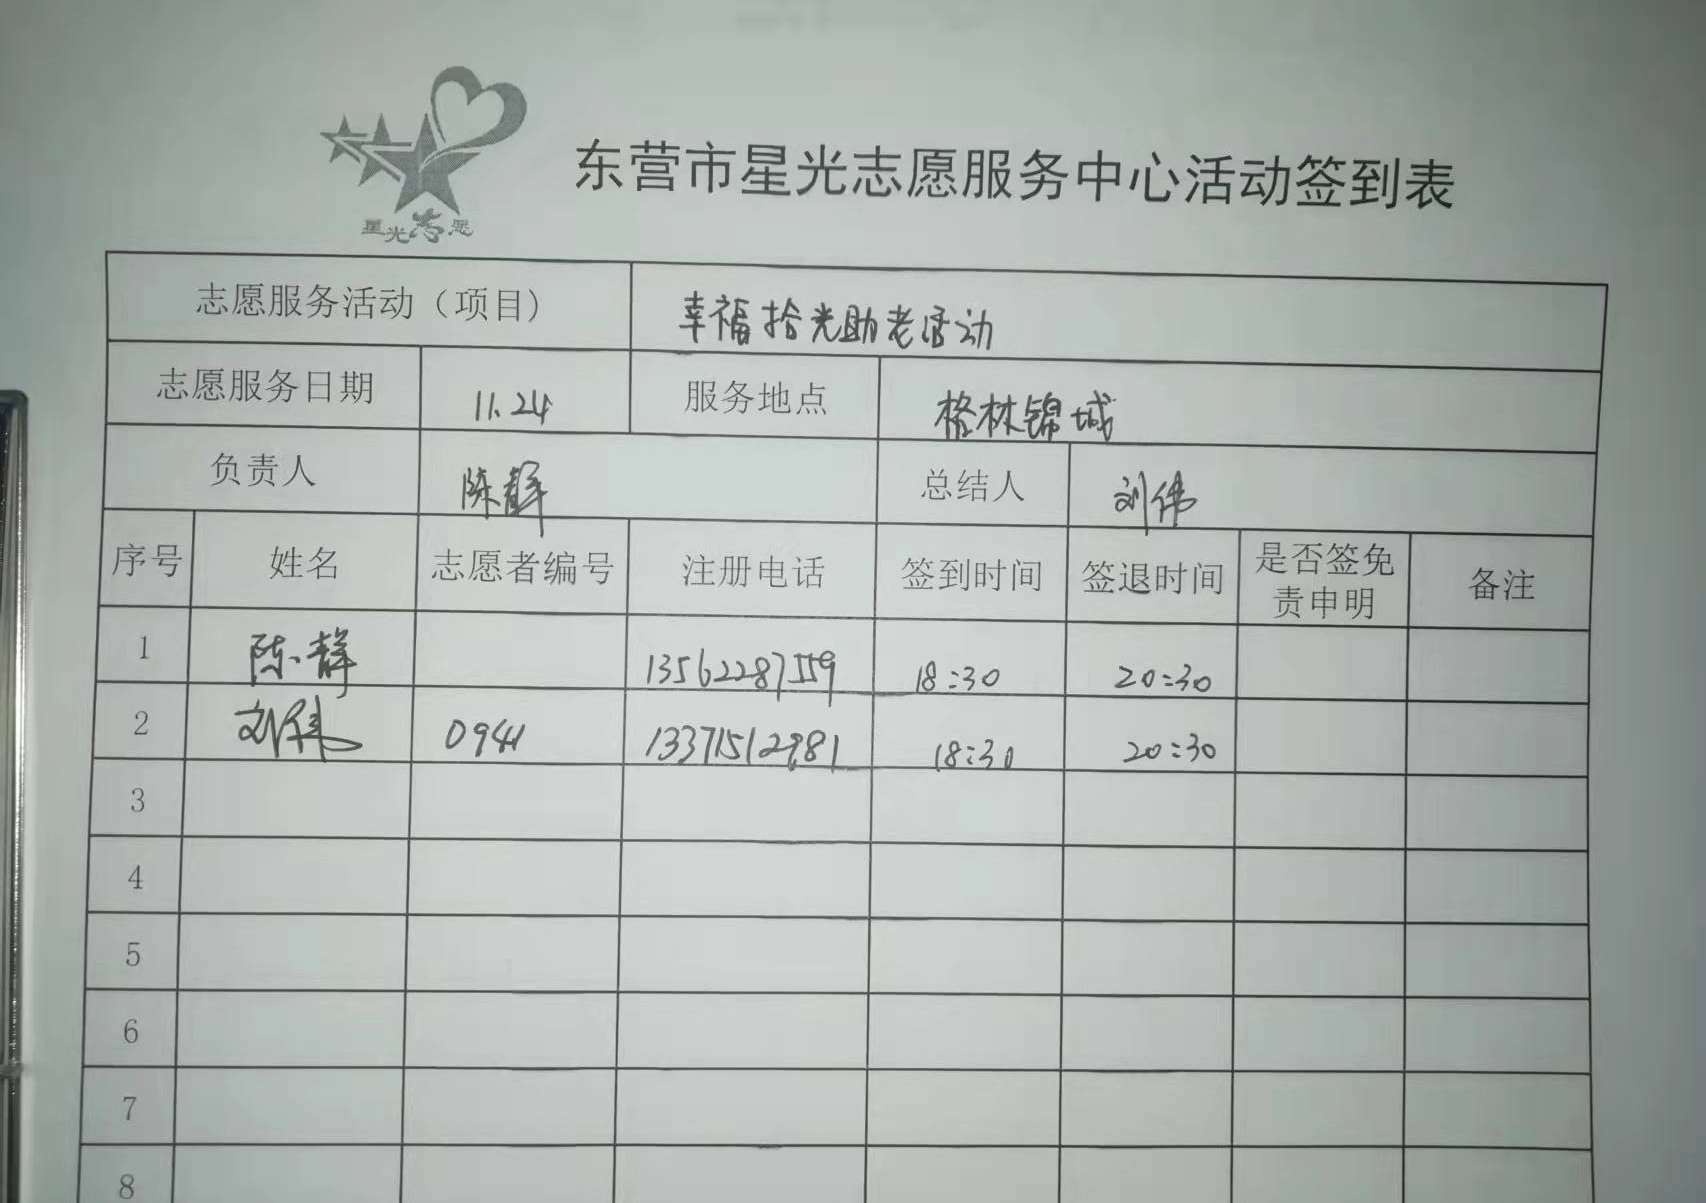 星光志愿
东营市星光志愿服务中心活动签到表
志愿服务活动（项目） 幸福拾光助老活动
志愿服务日期 11.24 服务地点 格林锦城
负责人 陈静 总结人 刘伟
序号 姓名 志愿者编号 注册电话 签到时间 签退时间 是否签免责申明 备注
1 陈静 13562287559 18:30 20:30
2 刘伟 0941 13371512981 18:30 20:30
3
4
5
6
7
8